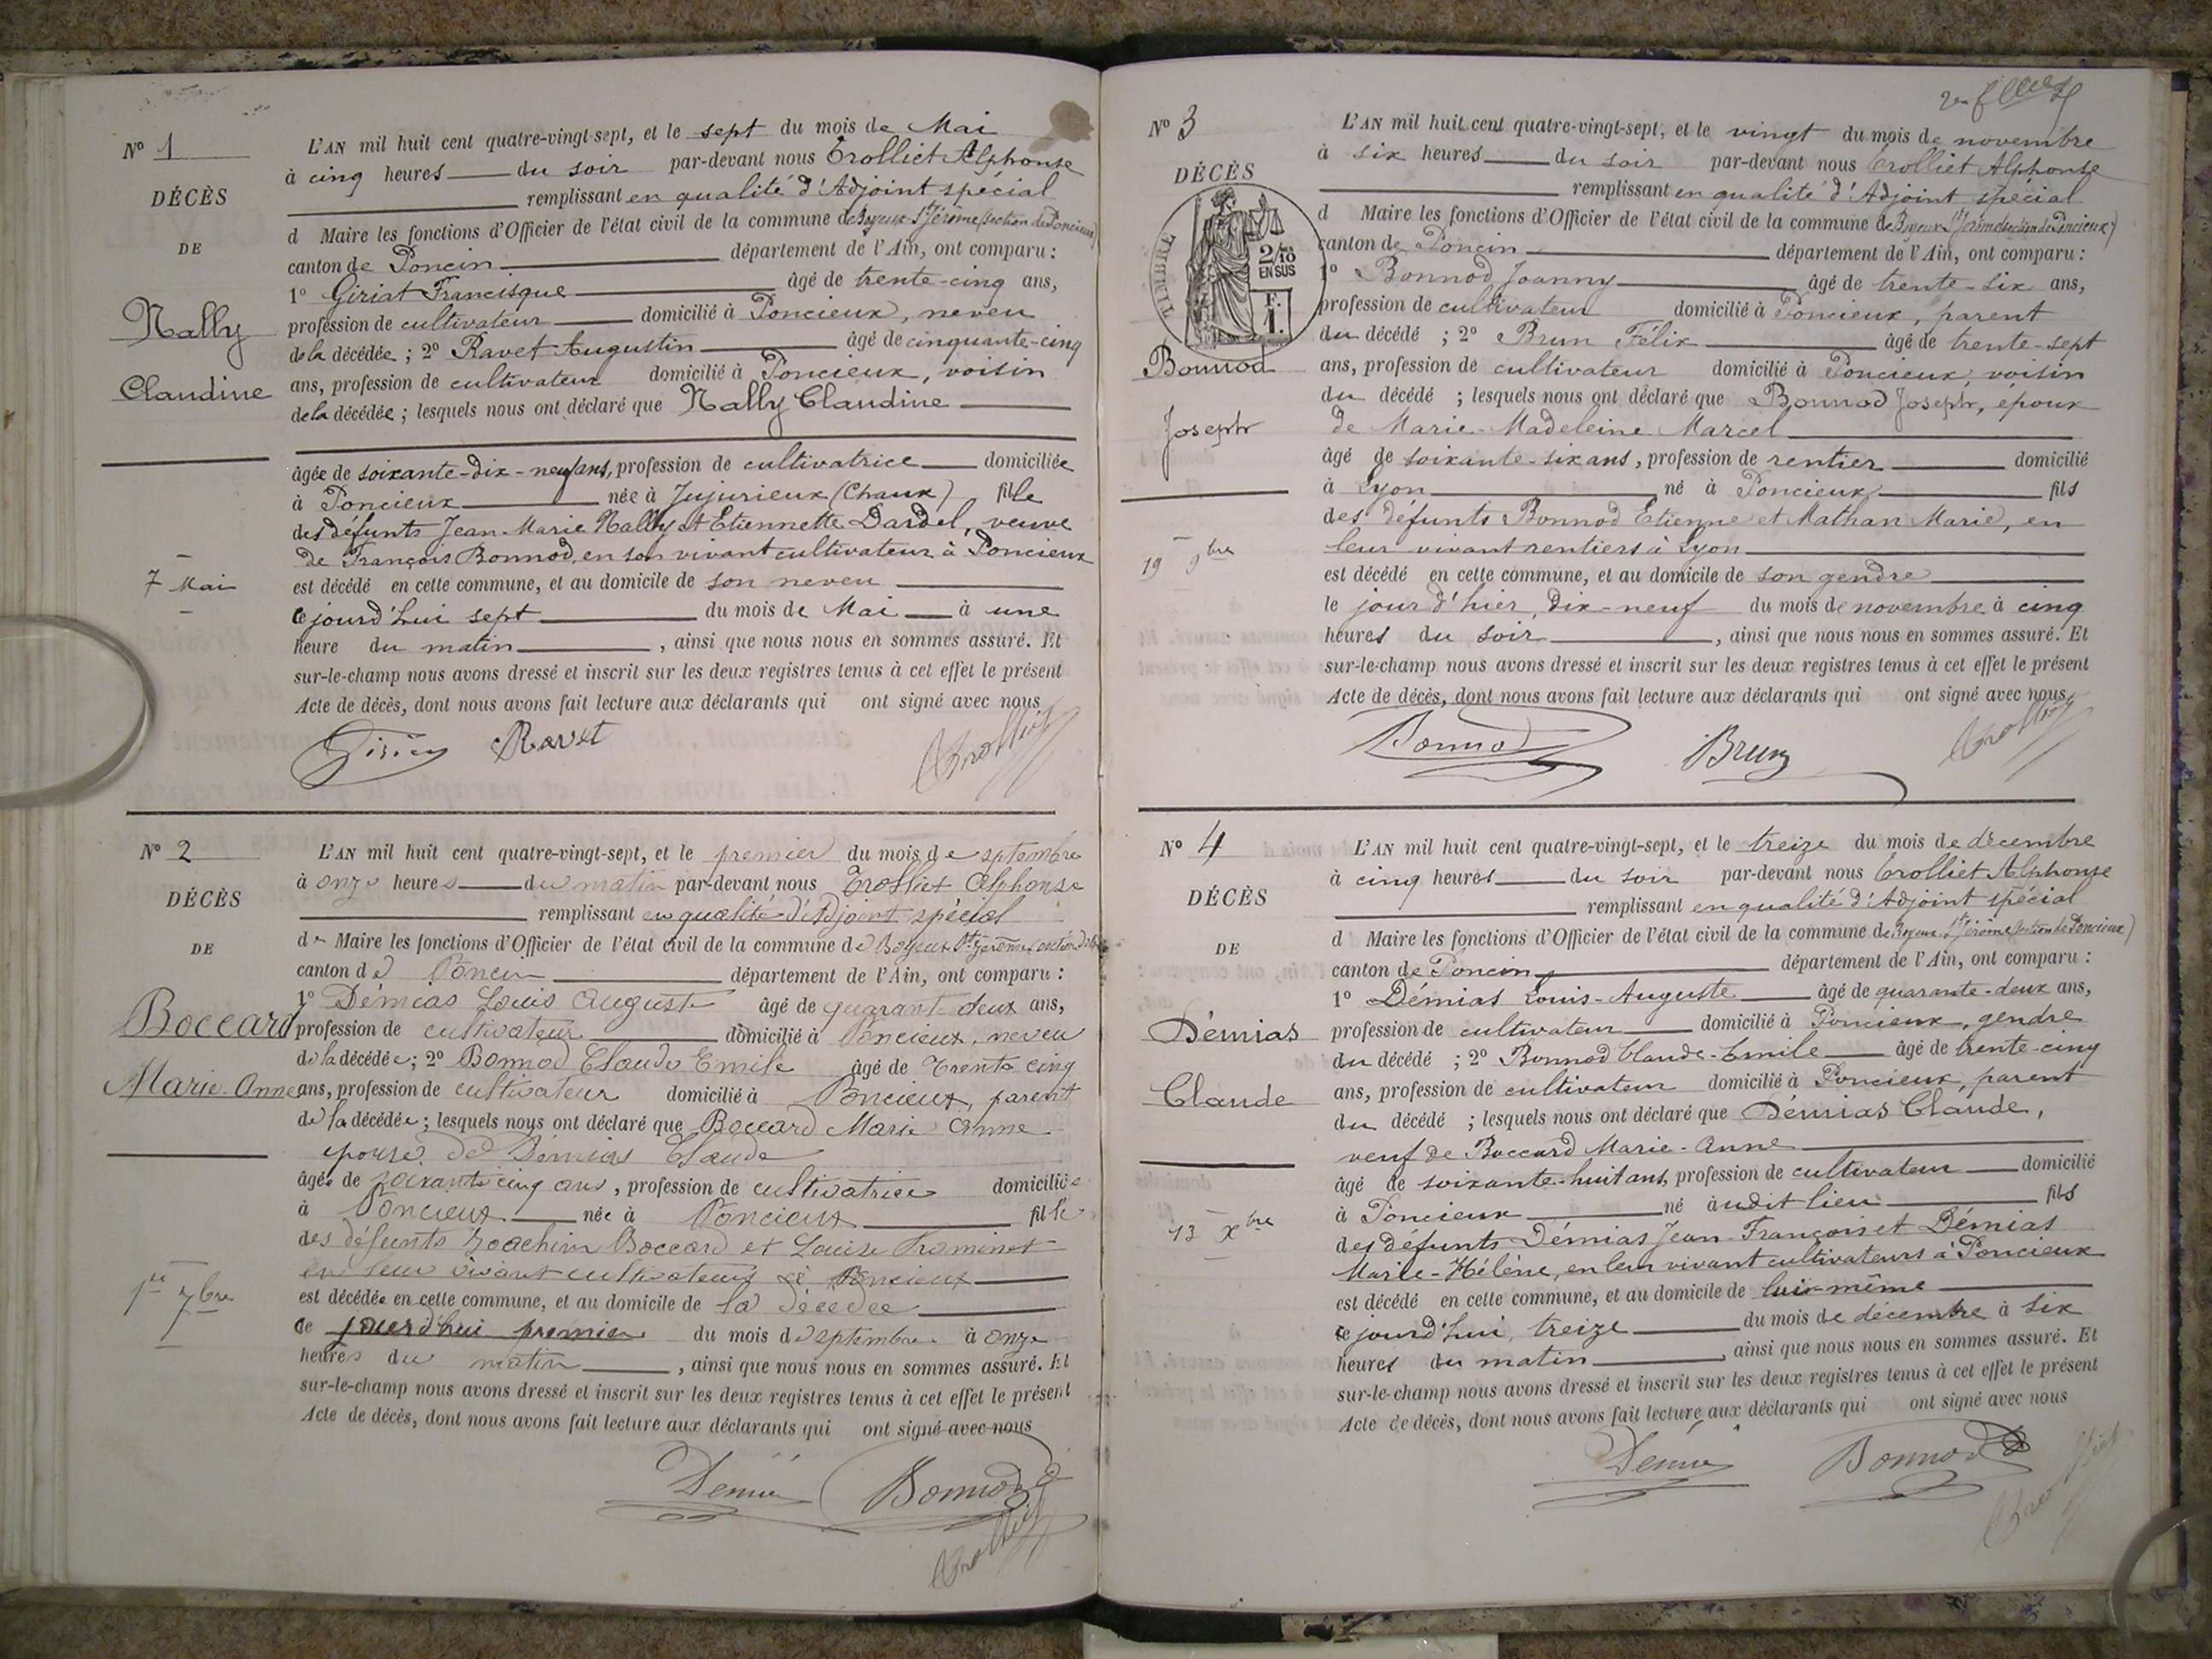 Nº 1
DÉCÈS
DE
Nally
Claudine
7 Mai
L'AN mil huit cent quatre-vingt-sept, et le sept du mois de Mai
à cinq heures du soir par-devant nous Trolliet Alphonse
remplissant en qualité d'Adjoint spécial
d Maire les fonctions d'Officier de l'état civil de la commune de Boyeux St Jérôme (section de Poncieux)
canton de Poncin département de l'Ain, ont comparu :
1º Giriat Francisque âgé de trente-cinq ans,
profession de cultivateur domicilié à Poncieux, neveu
de la décédée ; 2º Ravet Augustin âgé de cinquante-cinq
ans, profession de cultivateur domicilié à Poncieux, voisin
de la décédée ; lesquels nous ont déclaré que Nally Claudine
âgée de soixante-dix-neuf ans, profession de cultivatrice domiciliée
à Poncieux née à Jujurieux (Chaux) fille
des défunts Jean-Marie Nally et Etiennette Dardel, veuve
de François Bonnod, en son vivant cultivateur à Poncieux
est décédé en cette commune, et au domicile de son neveu
ce jourd'hui sept du mois de Mai à une
heure du matin, ainsi que nous nous en sommes assuré. Et
sur-le-champ nous avons dressé et inscrit sur les deux registres tenus à cet effet le présent
Acte de décès, dont nous avons fait lecture aux déclarants qui ont signé avec nous
Ravet Trolliet
Nº 2
DÉCÈS
DE
Boccard
Marie-Anne
1er 7bre
L'AN mil huit cent quatre-vingt-sept, et le premier du mois de septembre
à onze heures du matin par-devant nous Trolliet Alphonse
remplissant en qualité d'Adjoint spécial
de Maire les fonctions d'Officier de l'état civil de la commune de Boyeux St Jérôme section de
canton de Poncin département de l'Ain, ont comparu :
1º Démias Louis Auguste âgé de quarante deux ans,
profession de cultivateur domicilié à Poncieux, neveu
de la décédée ; 2º Bonnod Claude Emile âgé de Trente cinq
ans, profession de cultivateur domicilié à Poncieux, parent
de la décédée ; lesquels nous ont déclaré que Boccard Marie Anne
epouse de Démias Claude
âgée de soixante cinq ans, profession de cultivatrice domiciliée
à Poncieux née à Poncieux fille
des défunts Joachim Boccard et Louise
en leur vivant cultivateurs à Poncieux
est décédée en cette commune, et au domicile de la décédée
ce jourd'hui premier du mois de septembre à onze
heures du matin, ainsi que nous nous en sommes assuré. Et
sur-le-champ nous avons dressé et inscrit sur les deux registres tenus à cet effet le présent
Acte de décès, dont nous avons fait lecture aux déclarants qui ont signé avec nous
Bonnod
Trolliet
Nº 3
DÉCÈS
TIMBRE
2/10
EN SUS
F.
1.
Bonnod
Joseph
19 9bre
L'AN mil huit cent quatre-vingt-sept, et le vingt du mois de novembre
à six heures du soir par-devant nous Trolliet Alphonse
remplissant en qualité d'Adjoint spécial
d Maire les fonctions d'Officier de l'état civil de la commune de Boyeux St Jérôme (section de Poncieux)
canton de Poncin département de l'Ain, ont comparu :
1º Bonnod Joanny âgé de trente-six ans,
profession de cultivateur domicilié à Poncieux, parent
du décédé ; 2º Brun Félix âgé de trente-sept
ans, profession de cultivateur domicilié à Poncieux, voisin
du décédé ; lesquels nous ont déclaré que Bonnod Joseph, époux
de Marie-Madeleine Marcel
âgé de soixante-six ans, profession de rentier domicilié
à Lyon né à Poncieux fils
des défunts Bonnod Etienne et Mathan Marie, en
leur vivant rentiers à Lyon
est décédé en cette commune, et au domicile de son gendre
le jour d'hier, dix-neuf du mois de novembre à cinq
heures du soir, ainsi que nous nous en sommes assuré. Et
sur-le-champ nous avons dressé et inscrit sur les deux registres tenus à cet effet le présent
Acte de décès, dont nous avons fait lecture aux déclarants qui ont signé avec nous
Bonnod Brun Trolliet
Nº 4
DÉCÈS
DE
Démias
Claude
13 Xbre
L'AN mil huit cent quatre-vingt-sept, et le treize du mois de décembre
à cinq heures du soir par-devant nous Trolliet Alphonse
remplissant en qualité d'Adjoint spécial
d Maire les fonctions d'Officier de l'état civil de la commune de Boyeux St Jérôme (section de Poncieux)
canton de Poncin département de l'Ain, ont comparu :
1º Démias Louis-Auguste âgé de quarante-deux ans,
profession de cultivateur domicilié à Poncieux, gendre
du décédé ; 2º Bonnod Claude-Emile âgé de trente-cinq
ans, profession de cultivateur domicilié à Poncieux, parent
du décédé ; lesquels nous ont déclaré que Démias Claude,
veuf de Boccard Marie-Anne
âgé de soixante-huit ans, profession de cultivateur domicilié
à Poncieux né audit lieu fils
des défunts Démias Jean-François et Démias
Marie-Hélène, en leur vivant cultivateurs à Poncieux
est décédé en cette commune, et au domicile de lui-même
ce jourd'hui, treize du mois de décembre à six
heures du matin, ainsi que nous nous en sommes assuré. Et
sur-le-champ nous avons dressé et inscrit sur les deux registres tenus à cet effet le présent
Acte de décès, dont nous avons fait lecture aux déclarants qui ont signé avec nous
Bonnod
Trolliet